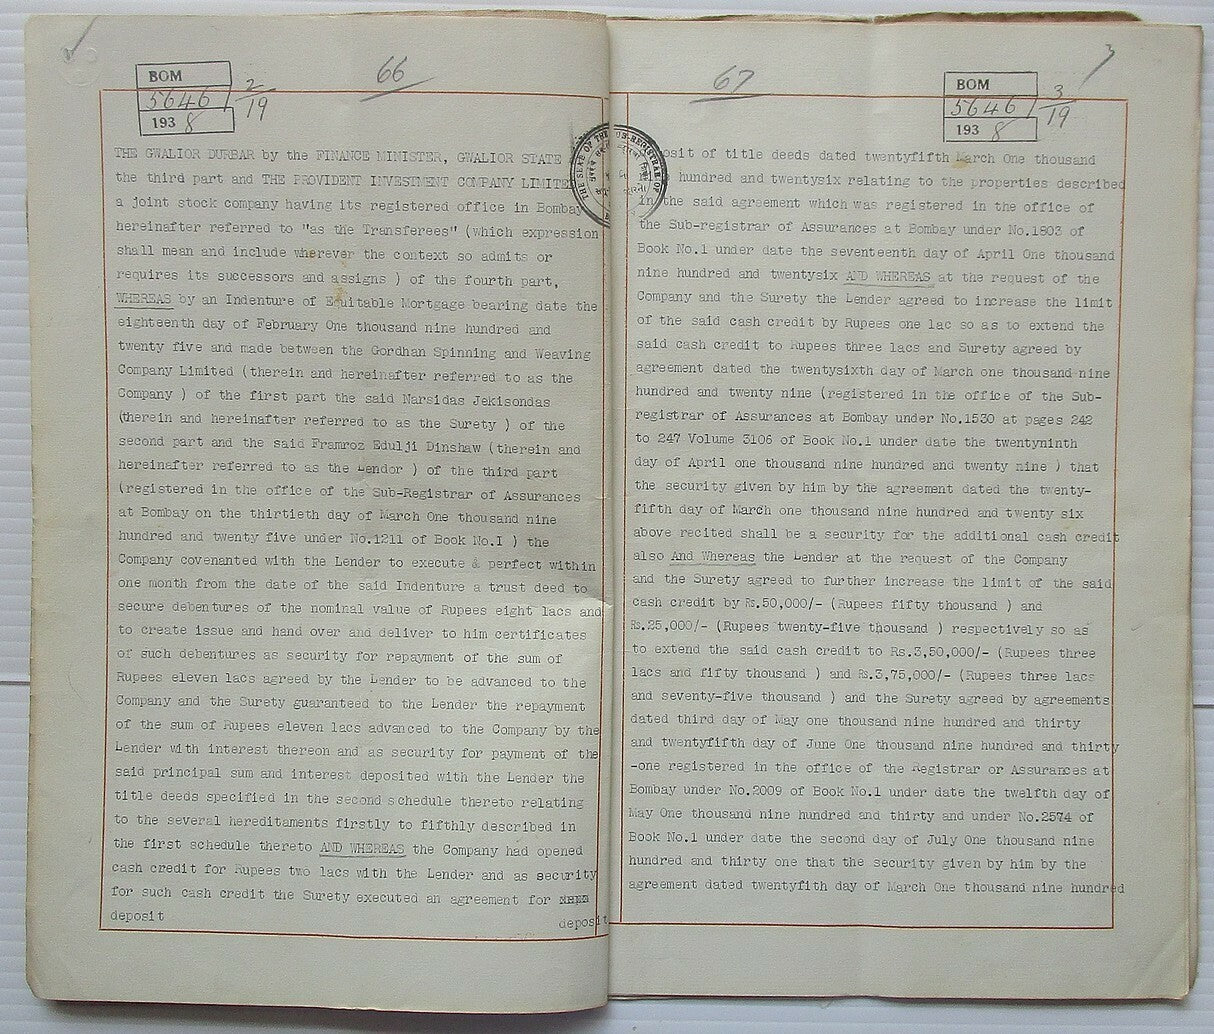 66
BOM
5646
1938
2/19
THE GWALIOR DURBAR by the FINANCE MINISTER, GWALIOR STATE
the third part and THE PROVIDENT INVESTMENT COMPANY LIMITE
a joint stock company having its registered office in Bombay
hereinafter referred to "as the Transferees" (which expression
shall mean and include wherever the context so admits or
requires its successors and assigns ) of the fourth part,
WHEREAS by an Indenture of Equitable Mortgage bearing date the
eighteenth day of February One thousand nine hundred and
twenty five and made between the Gordhan Spinning and Weaving
Company Limited (therein and hereinafter referred to as the
Company ) of the first part the said Narsidas Jekisondas
(therein and hereinafter referred to as the Surety ) of the
second part and the said Framroz Edulji Dinshaw (therein and
hereinafter referred to as the Lendor ) of the third part
(registered in the office of the Sub-Registrar of Assurances
at Bombay on the thirtieth day of March One thousand nine
hundred and twenty five under No.1211 of Book No.I ) the
Company covenanted with the Lender to execute & perfect within
one month from the date of the said Indenture a trust deed to
secure debentures of the nominal value of Rupees eight lacs and
to create issue and hand over and deliver to him certificates
of such debentures as security for repayment of the sum of
Rupees eleven lacs agreed by the Lender to be advanced to the
Company and the Surety guaranteed to the Lender the repayment
of the sum of Rupees eleven lacs advanced to the Company by the
Lender with interest thereon and as security for payment of the
said principal sum and interest deposited with the Lender the
title deeds specified in the second schedule thereto relating
to the several hereditaments firstly to fifthly described in
the first schedule thereto AND WHEREAS the Company had opened
cash credit for Rupees two lacs with the Lender and as security
for such cash credit the Surety executed an agreement for
deposit deposit
THE SEAL OF THE SUB-REGISTRAR OF
67
3
BOM
5646
1938
3/19
osit of title deeds dated twentyfifth March One thousand
hundred and twentysix relating to the properties described
in the said agreement which was registered in the office of
the Sub-registrar of Assurances at Bombay under No.1803 of
Book No.1 under date the seventeenth day of April One thousand
nine hundred and twentysix AND WHEREAS at the request of the
Company and the Surety the Lender agreed to increase the limit
of the said cash credit by Rupees one lac so as to extend the
said cash credit to Rupees three lacs and Surety agreed by
agreement dated the twentysixth day of March one thousand nine
hundred and twenty nine (registered in the office of the Sub-
registrar of Assurances at Bombay under No.1530 at pages 242
to 247 Volume 3106 of Book No.1 under date the twentyninth
day of April one thousand nine hundred and twenty nine ) that
the security given by him by the agreement dated the twenty-
fifth day of March one thousand nine hundred and twenty six
above recited shall be a security for the additional cash credit
also And Whereas the Lender at the request of the Company
and the Surety agreed to further increase the limit of the said
cash credit by Rs.50,000/- (Rupees fifty thousand ) and
Rs.25,000/- (Rupees twenty-five thousand ) respectively so as
to extend the said cash credit to Rs.3,50,000/- (Rupees three
lacs and fifty thousand ) and Rs.3,75,000/- (Rupees three lacs
and seventy-five thousand ) and the Surety agreed by agreements
dated third day of May one thousand nine hundred and thirty
and twentyfifth day of June One thousand nine hundred and thirty
-one registered in the office of the Registrar or Assurances at
Bombay under No.2009 of Book No.1 under date the twelfth day of
May One thousand nine hundred and thirty and under No.2574 of
Book No.1 under date the second day of July One thousand nine
hundred and thirty one that the security given by him by the
agreement dated twentyfith day of March One thousand nine hundred